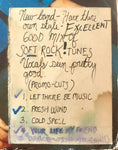 New band - Have their
own style. EXCELLENT
GOOD MIX OF
SOFT ROCK TUNES
Vocals even pretty
good
(PROMO-CUTS)
1. LET THERE BE MUSIC
2. FRESH WIND
3. COLD SPELL
4. YOUR LIFE MY FRIEND